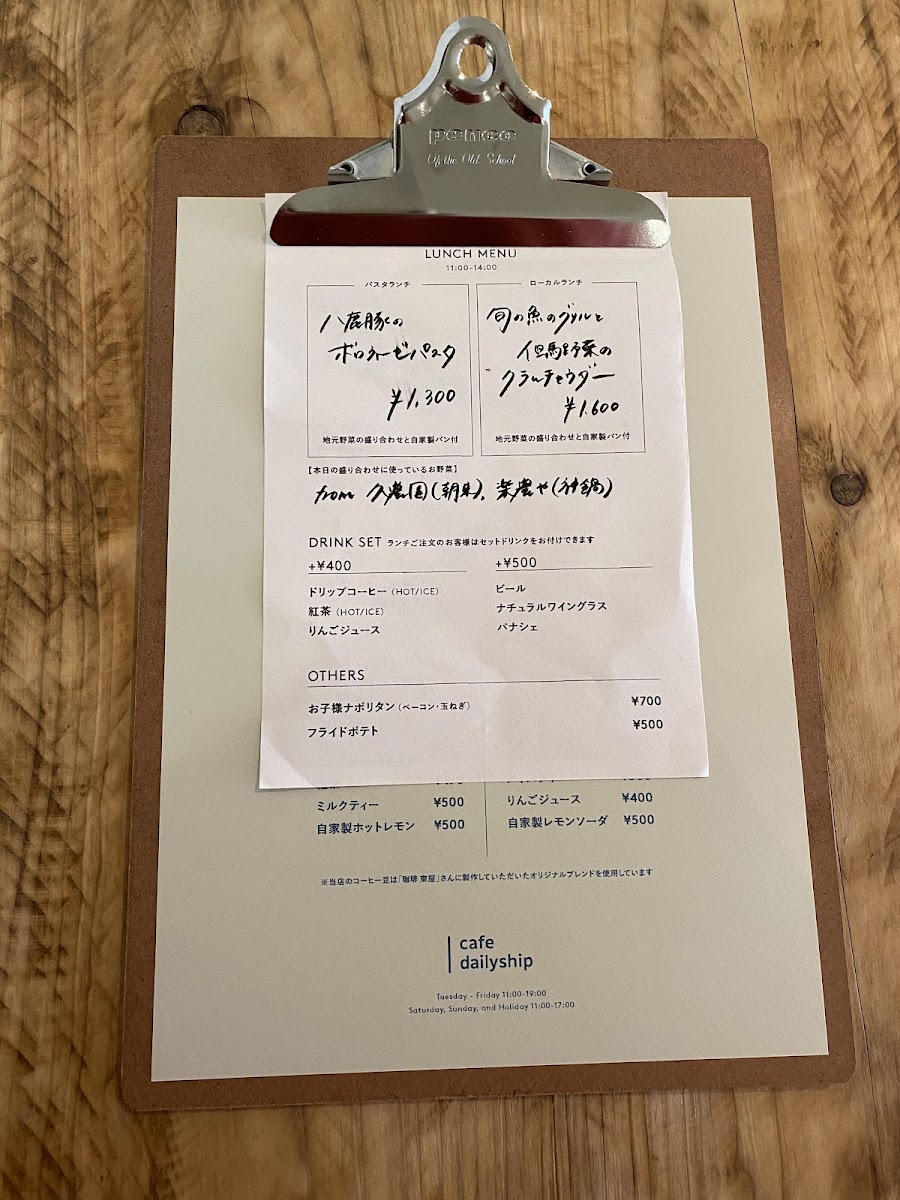 penco
Of the Old School
LUNCH MENU
11:00-14:00
パスタランチ
八鹿豚の
ボロネーゼパスタ
¥1,300
地元野菜の盛り合わせと自家製パン付
ローカルランチ
旬の魚のグリルと
但馬野菜の
クラムチャウダー
¥1,600
地元野菜の盛り合わせと自家製パン付
【本日の盛り合わせに使っているお野菜】
from 久農園(朝来)、楽農や(神鍋)
DRINK SET ランチご注文のお客様はセットドリンクをお付けできます
+¥400
ドリップコーヒー (HOT/ICE)
紅茶 (HOT/ICE)
りんごジュース
+¥500
ビール
ナチュラルワイングラス
パナシェ
OTHERS
お子様ナポリタン (ベーコン・玉ねぎ) ¥700
フライドポテト ¥500
ミルクティー ¥500
自家製ホットレモン ¥500
りんごジュース ¥400
自家製レモンソーダ ¥500
※当店のコーヒー豆は「珈琲 東屋」さんに製作していただいたオリジナルブレンドを使用しています
cafe
dailyship
Tuesday - Friday 11:00-19:00
Saturday, Sunday, and Holiday 11:00-17:00